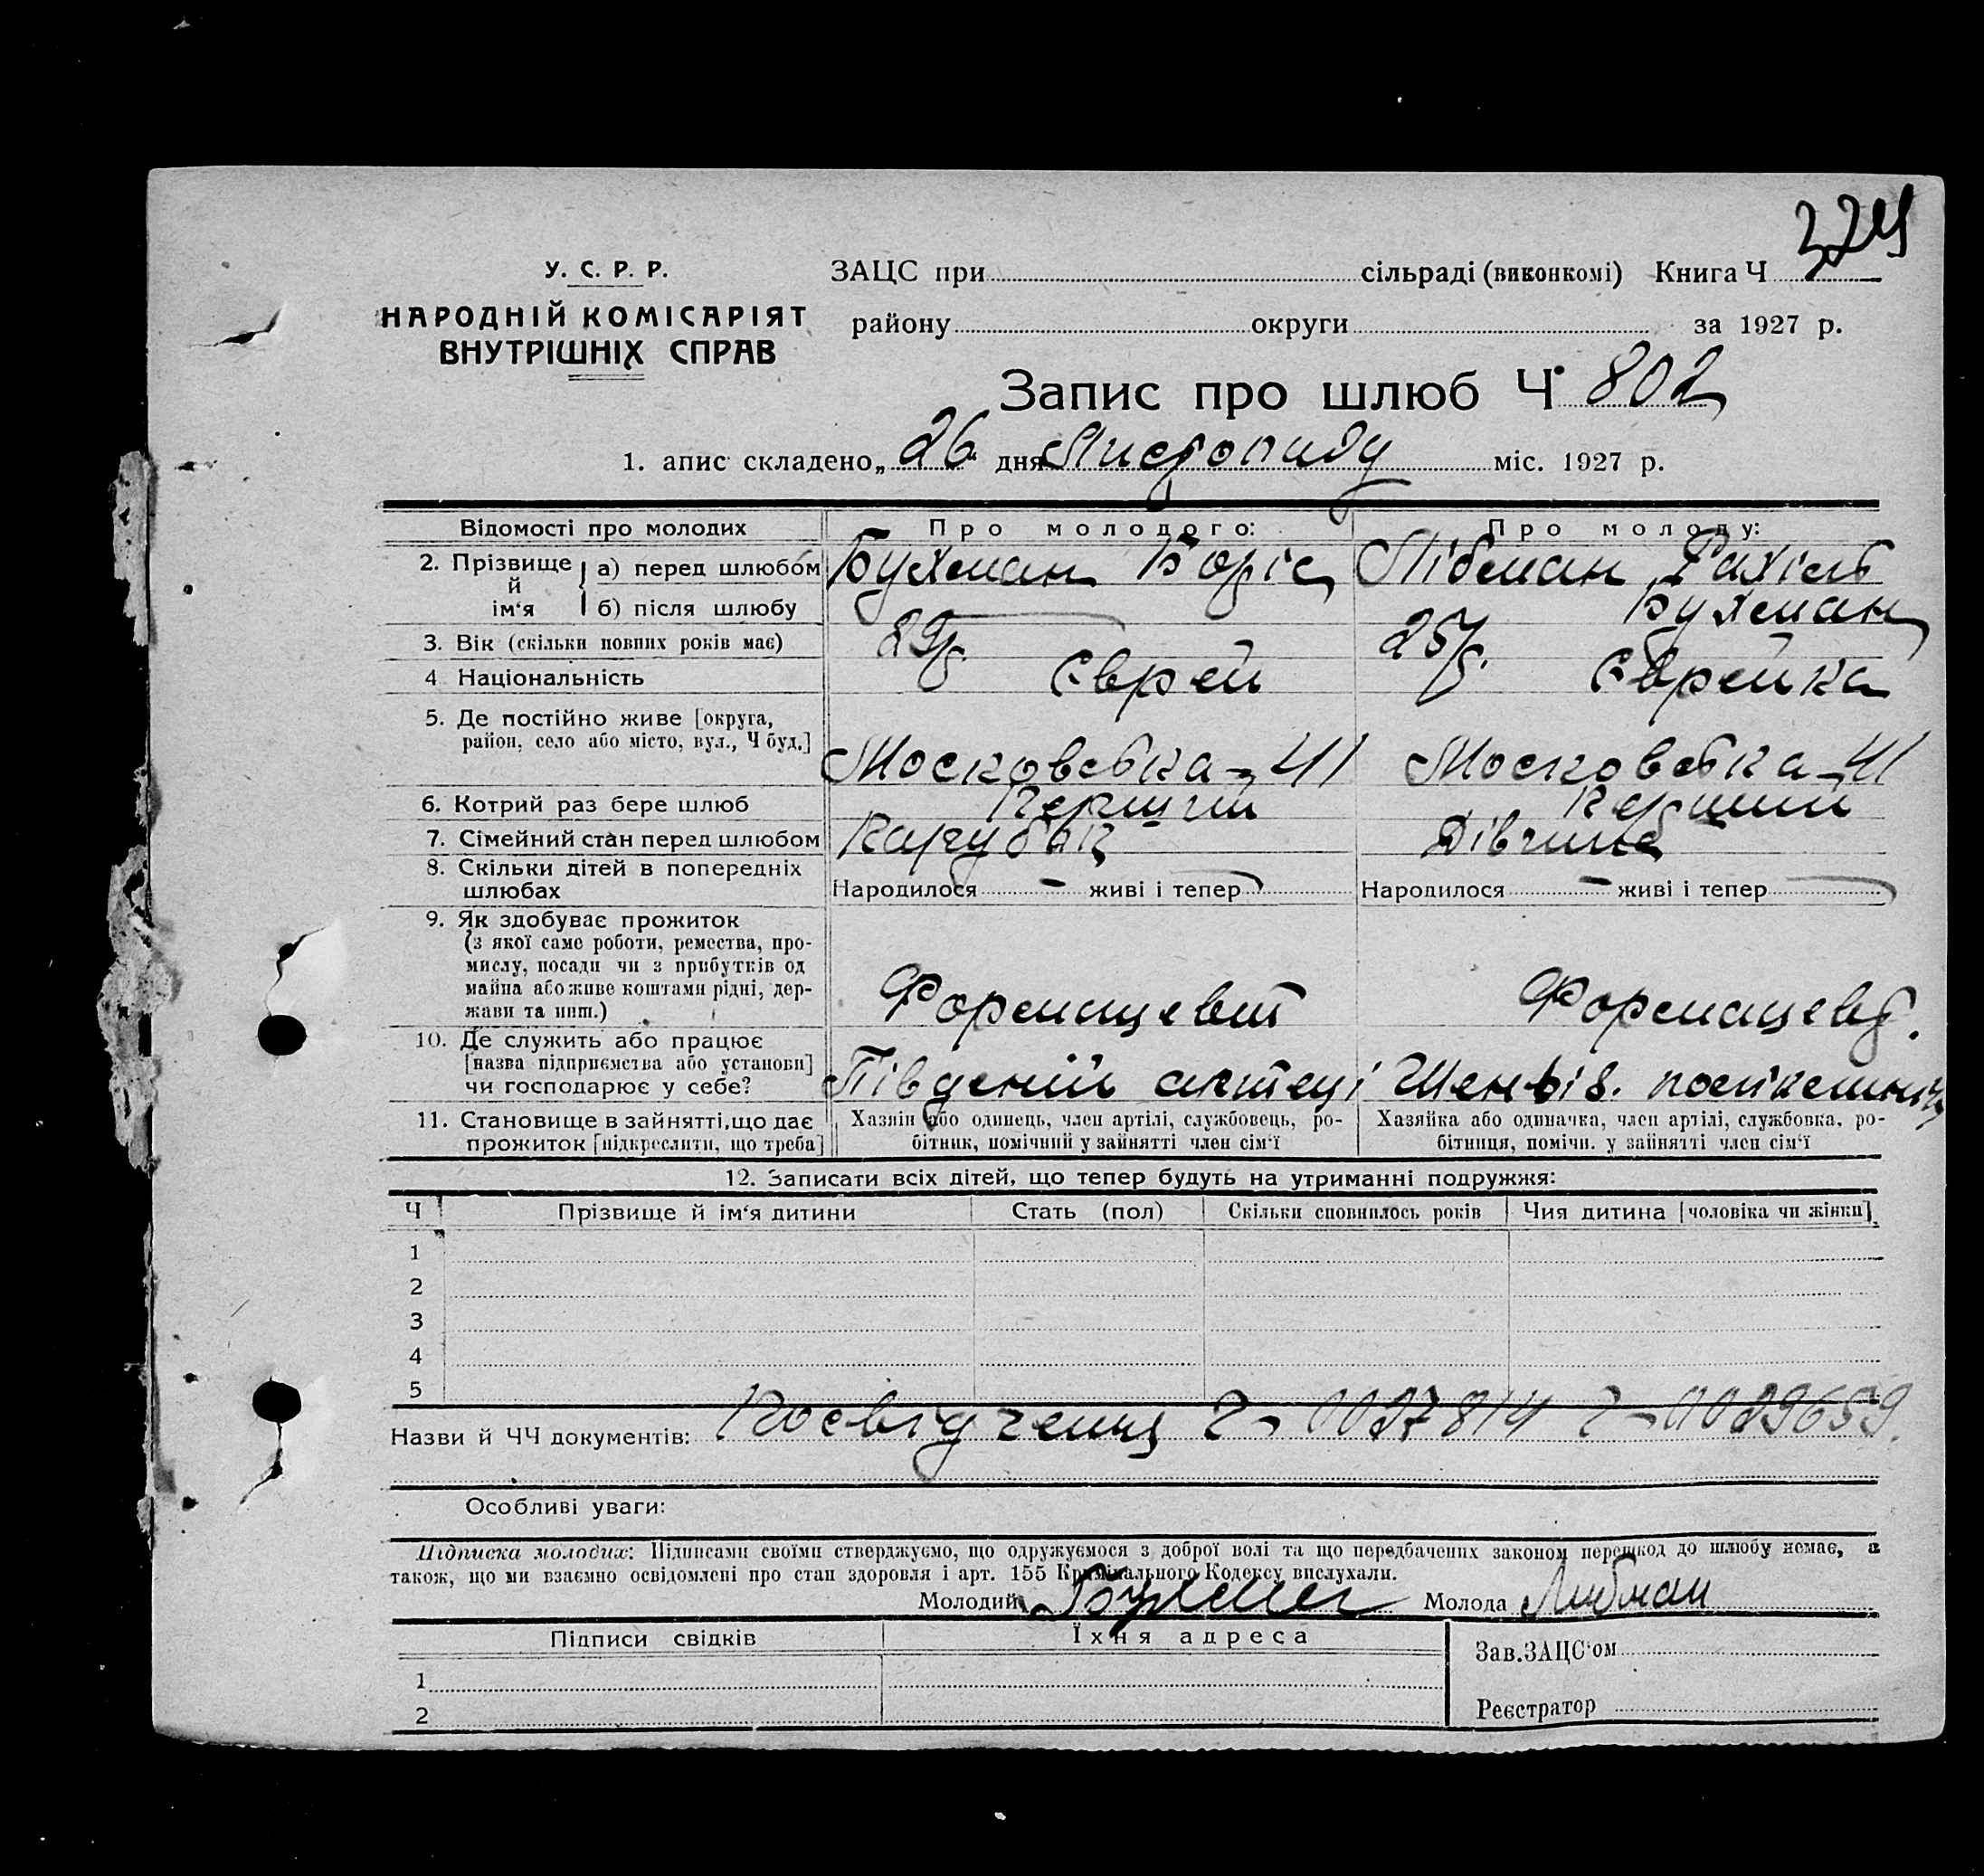 У. С. Р. Р.
НАРОДНІЙ КОМІСАРІЯТ
ВНУТРІШНІХ СПРАВ
ЗАЦС при сільраді (виконкомі) Книга Ч
району округи за 1927 р.
Запис про шлюб Ч 802
1. апис складено „26“ дня Листопаду міс. 1927 р.
Відомості про молодих Про молодого: Про молоду:
2. Прізвище й ім‘я а) перед шлюбом Бухман Боріс Лібман Рахіль
б) після шлюбу Бухман
3. Вік (скільки повних років має) 29 р. 25 р.
4 Національність Єврей Єврейка
5. Де постійно живе [округа,
район, село або місто, вул., Ч буд.] Московська-41 Московська-41
6. Котрий раз бере шлюб Перший Перший
7. Сімейний стан перед шлюбом Парубок Дівчина
8. Скільки дітей в попередніх
шлюбах Народилося — живі і тепер Народилося — живі і тепер
9. Як здобуває прожиток
(з якої саме роботи, ремества, про-
мислу, посади чи з прибутків од
майна або живе коштами рідні, дер-
жави та инш.) Формацевт Формацевт.
10. Де служить або працює
[назва підприємства або установи]
чи господарює у себе? Південій аптеці
11. Становище в зайнятті, що дає
прожиток [підкреслити, що треба]
Хазяїн або одинець, член артілі, службовець, ро-
бітник, помічний у зайнятті член сім‘ї
Хазяйка або одиначка, член артілі, службовка, ро-
бітниця, помічн. у зайнятті член сім‘ї
12. Записати всіх дітей, що тепер будуть на утриманні подружжя:
Ч Прізвище й ім‘я дитини Стать (пол) Скільки сповнилось років Чия дитина [чоловіка чи жінки]
1
2
3
4
5
Назви й ЧЧ документів: Посвідчення
Особливі уваги:
Підписка молодих: Підписами своїми стверджуємо, що одружуємося з доброї волі та що передбачених законом перешкод до шлюбу немає, а
також, що ми взаємно освідомлені про стан здоровля і арт. 155 Кримінального Кодексу вислухали.
Молодий Бухман Молода Либман
Підписи свідків Їхня адреса Зав. ЗАЦС‘ом
1
2 Реєстратор